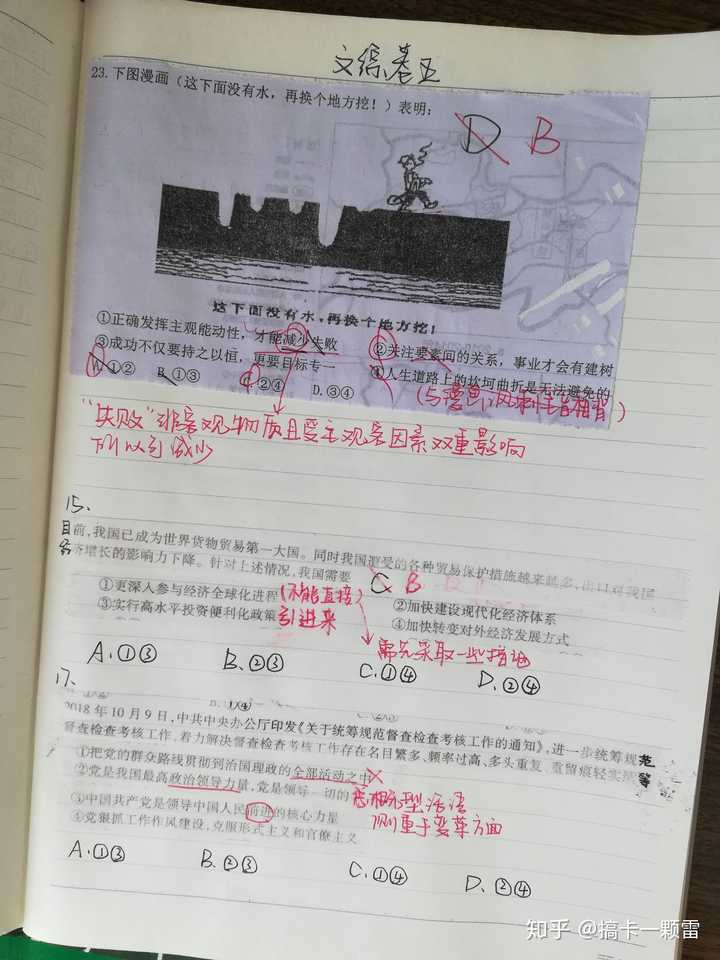 文综卷五
23. 下图漫画（这下面没有水，再换个地方挖！）表明：
D B
这下面没有水，再换个地方挖！
①正确发挥主观能动性，才能减少失败
②关注要素间的关系，事业才会有建树
③成功不仅要持之以恒，更要目标专一
④人生道路上的坎坷曲折是无法避免的
A.①② B.①③ C.②④ D.③④
(与漫画讽刺主旨相背)
"失败"非客观物质且受主观因素双重影响
所以可减少
15.
目前,我国已成为世界货物贸易第一大国。同时我国遭受的各种贸易保护措施越来越多,出口对我国
经济增长的影响力下降。针对上述情况,我国需要
C B
①更深入参与经济全球化进程(不能直接)
②加快建设现代化经济体系
③实行高水平投资便利化政策 引进来
④加快转变对外经济发展方式
需先采取一些措施
A.①③ B.②③ C.①④ D.②④
17.
2018年10月9日,中共中央办公厅印发《关于统筹规范督查检查考核工作的通知》,进一步统筹规范
督查检查考核工作,着力解决督查检查考核工作存在名目繁多、频率过高、多头重复、重留痕轻实绩等
①把党的群众路线贯彻到治国理政的全部活动之中
②党是我国最高政治领导力量,党是领导一切的
③中国共产党是领导中国人民前进的核心力量
则重于变革方面
④党狠抓工作作风建设,克服形式主义和官僚主义
A.①③ B.②③ C.①④ D.②④
知乎 @搞卡一颗雷